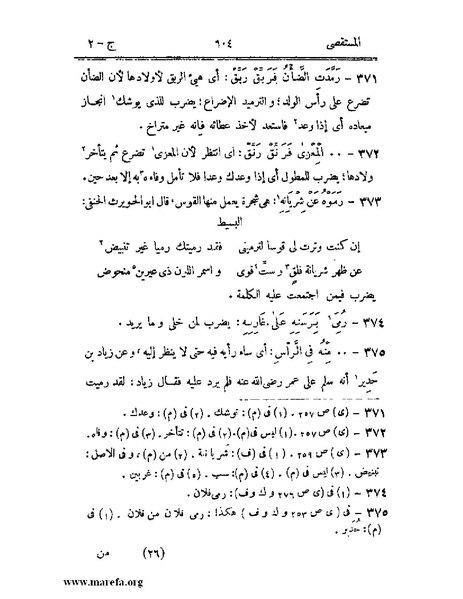 المستقصى ٦٠٤ ج – ٢
٣٧١ – رَمَّدَتِ الضَّأْنُ فَرَبِّقْ رَبِّقْ: أى هيئ الربق لأولادها لأن الضأن
تضرع على رأس الولد؛ والترميد الإضراع؛ يضرب للذى يوشك١ انجاز
ميعاده أى إذا وعد٢ فاستعد لأخذ عطائه فإنه غير متراخ.
٣٧٢ – ٠٠ الْمِعْزَى فَرَنِّقْ رَنِّقْ: اى انتظر لأن المعزى١ تضرع ثم يتأخر٢
ولادها؛ يضرب للمطول أى إذا وعدك وعدا فلا تأمل وفاءه٣ به إلا بعد حين.
٣٧٣ – رَمَوْهُ عَنْ شِرْيَانِهِ١: هى شجرة يعمل منها القوس، قال ابو الحويرث الحنفى:
البسيط
إن كنت وترت لى قوسا لترمينى فقد رميتك رميا غير تنبيض٢
عن ظهر شريانة فلق٣ ورست٤ قوى و اسمر اللون ذى عيرين٥ منحوض
يضرب فيمن اجتمعت عليه الكلمة.
٣٧٤ – رُمِىَ١ بِرَسَنِهِ عَلَى غَارِبِهِ: يضرب لمن خلى و ما يريد.
٣٧٥ – ٠٠ مِنْهُ فِى الرَّأْسِ: أى ساء رأيه فيه حتى لا ينظر إليه، وعن زياد بن
حدير١ أنه سلم على عمر رضى الله عنه فلم يرد عليه فقال زياد: لقد رميت
٣٧١ – (ى) ص ٢٥٧. (١) فى (م): توشك. (٢) فى (م): وعدك.
٣٧٢ – (ى) ص ٢٥٧. (١) ليس فى (م). (٢) فى (م): تتأخر. (٣) فى (م): وفاه.
٣٧٣ – (ى) ص ٢٥٩. (١) فى (ف): شريانة. (٢) من (م)، و فى الاصل:
تبنيض. (٣) ليس فى (م). (٤) فى (م): سب. (٥) فى (م): غربين.
٣٧٤ – (١) فى (ى ص ٢٧٦ و ك و ف): رمى فلان.
٣٧٥ – (ى ص ٢٥٣ و ك و ف) هكذا: رمى فلان من فلان. (١) فى
(م): حذير.
(٢٦) من
www.marefa.org